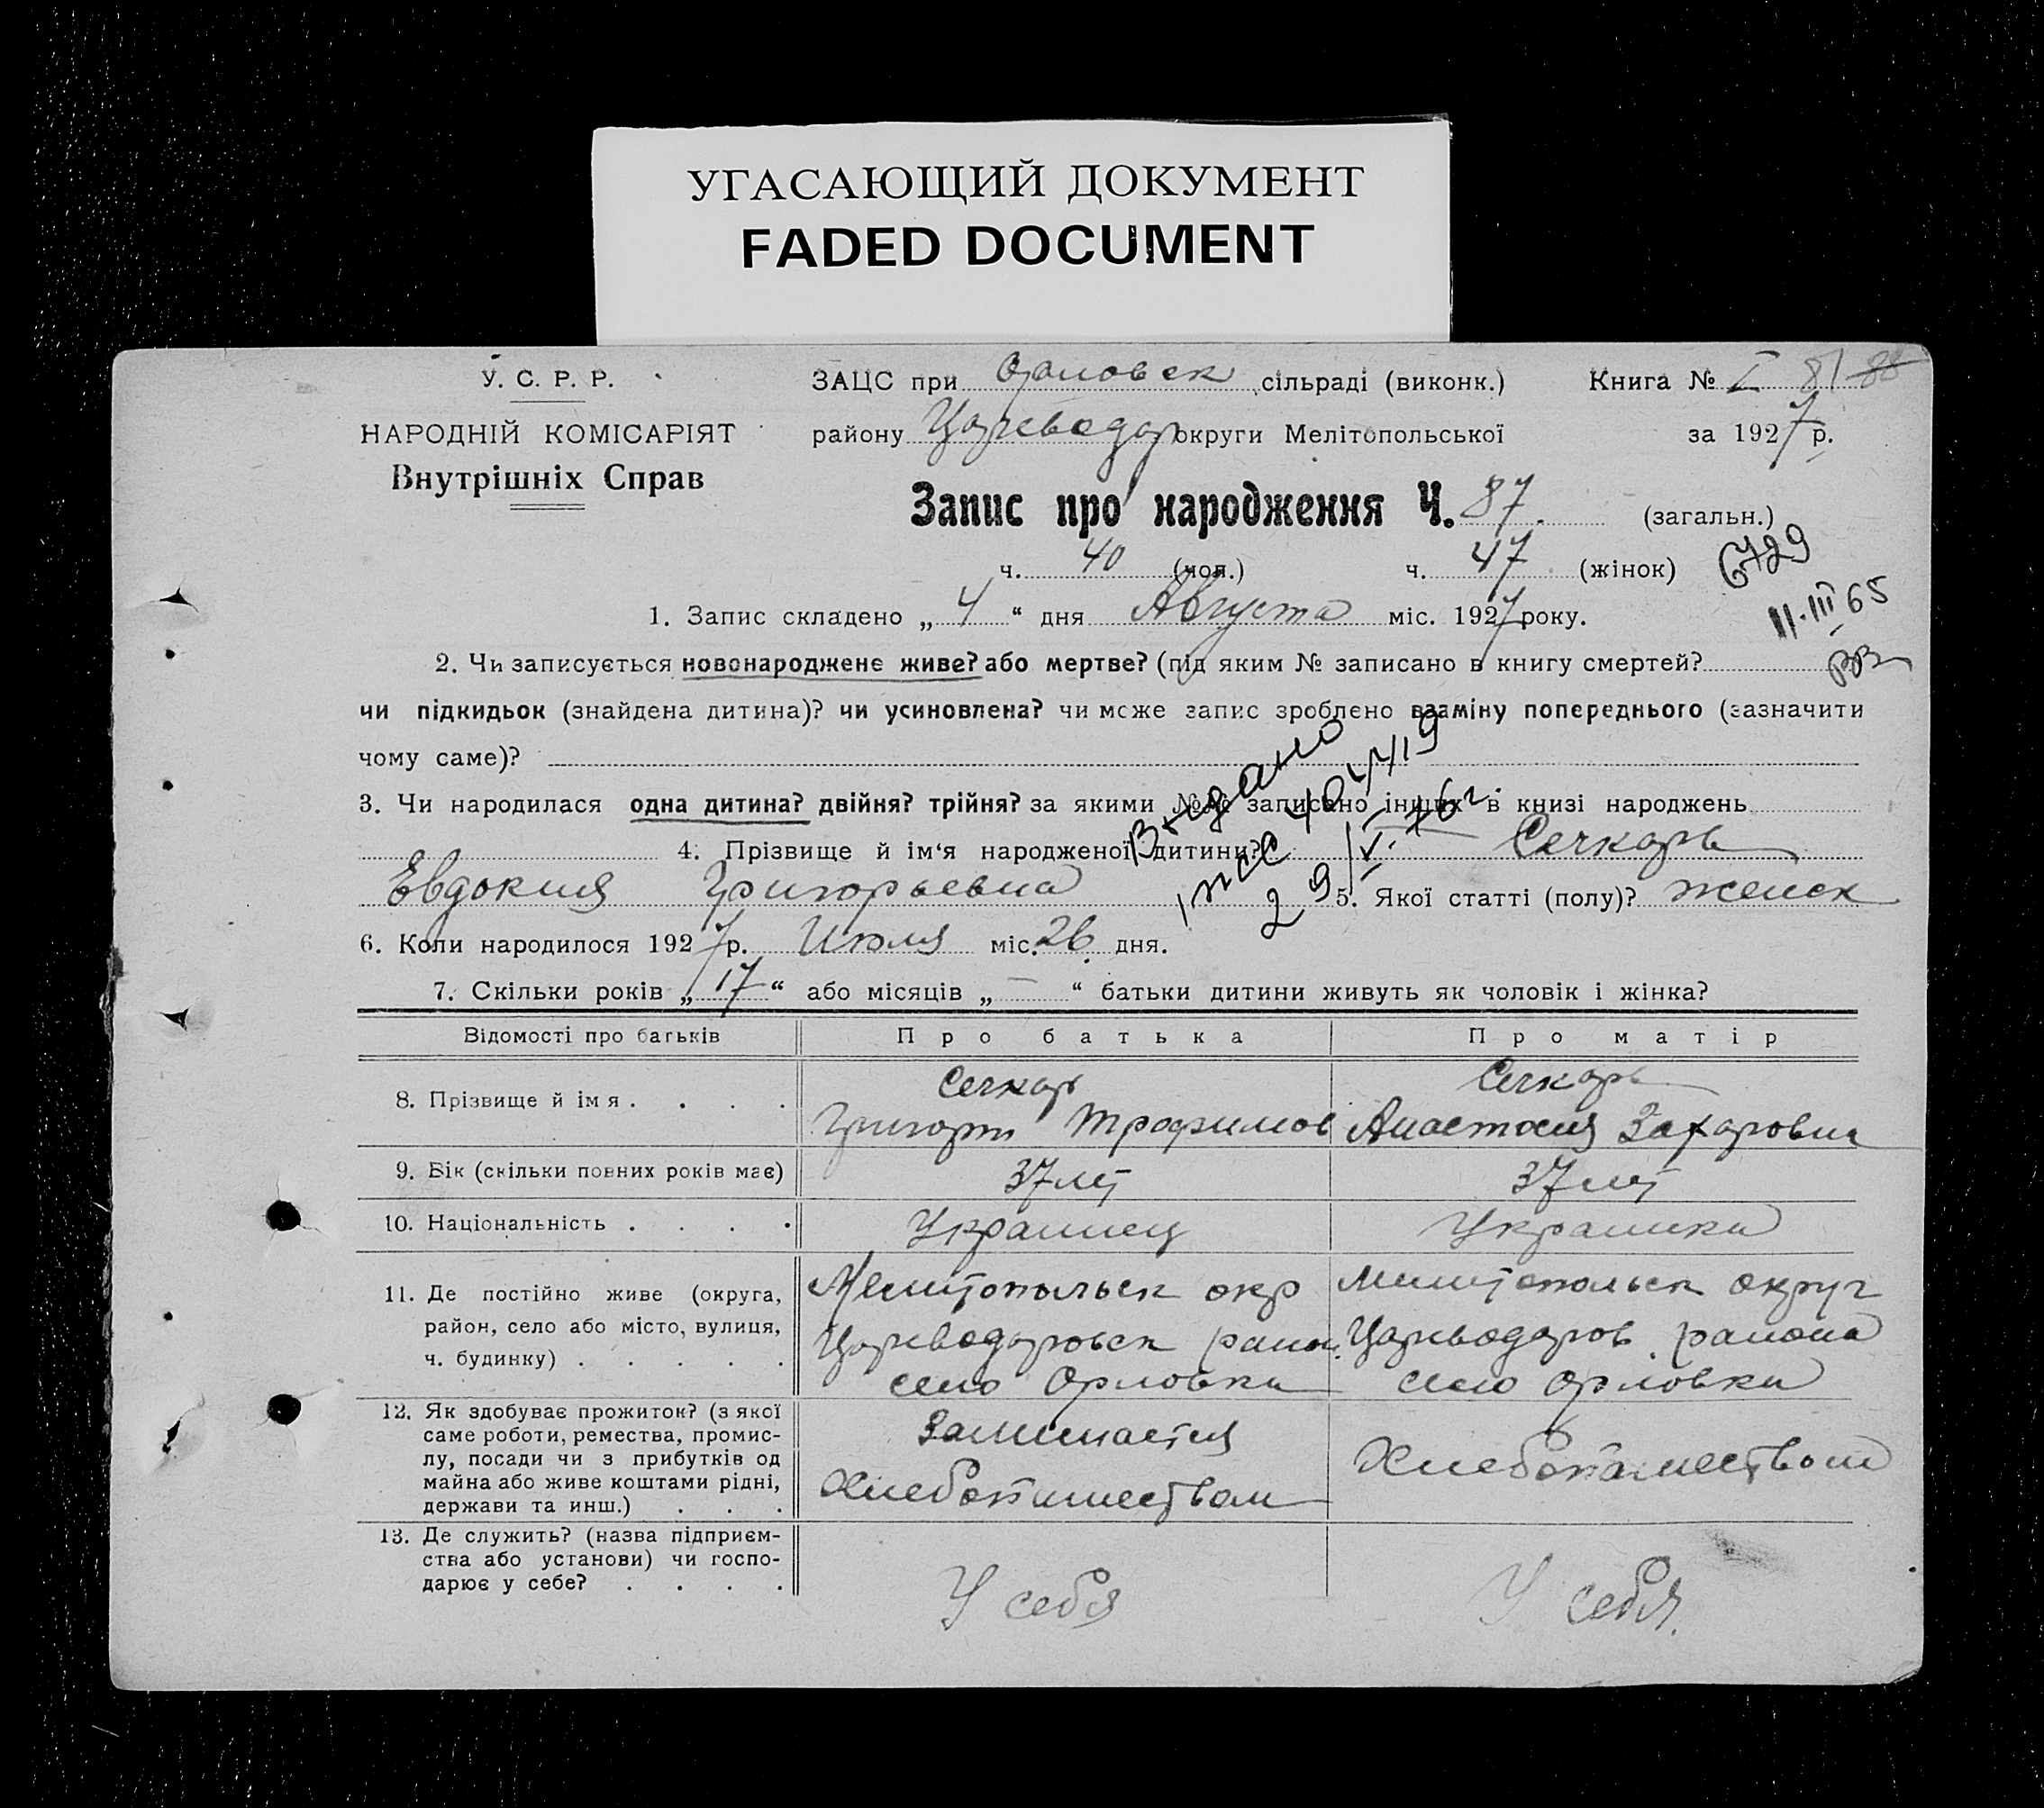 УГАСАЮЩИЙ ДОКУМЕНТ
FADED DOCUMENT
У. С. Р. Р.
НАРОДНІЙ КОМІСАРІЯТ
Внутрішніх Справ
ЗАЦС при Орловск сільраді (виконк.) Книга № I 81 88
району Цареводар округи Мелітопольської за 1927 р.
Запис про народження Ч. 87. (загальн.)
ч. 40 (чол.) ч. 47 (жінок)
6729
11.III 65
1. Запис складено „4“ дня Августа міс. 1927 року.
2. Чи записується новонароджене живе? або мертве? (під яким № записано в книгу смертей?
чи підкидьок (знайдена дитина)? чи усиновлена? чи може запис зроблено взаміну попереднього (зазначити
чому саме)?
Видано
29/V-76г.
3. Чи народилася одна дитина? двійня? трійня? за якими №№ записано інших в книзі народжень
4. Прізвище й ім‘я народженої дитини? Сечкарь
Евдокия Григорьевна 5. Якої статті (полу)? женск
6. Коли народилося 1927 р. Июля міс. 26 дня.
7. Скільки років „17“ або місяців „—“ батьки дитини живуть як чоловік і жінка?
Відомості про батьків Про батька Про матір
8. Прізвище й ім я . . . . Сечкарь Григорий Трофимов Сечкарь Анастасия Захаровна
9. Вік (скільки повних років має) 37 лет 37 лет
10. Національність . . . . Украинец Украинка
11. Де постійно живе (округа, район, село або місто, вулиця, ч. будинку) . . . . . Мелитопольск окр Цареводаровск район. село Орловка Мелитопольск округ Цареводаров. района село Орловка
12. Як здобуває прожиток? (з якої саме роботи, ремества, промислу, посади чи з прибутків од майна або живе коштами рідні, держави та инш.) . . . Занимается Хлебопашеством Хлебопашеством
13. Де служить? (назва підприємства або установи) чи господарює у себе? . . . . У себя У себя.